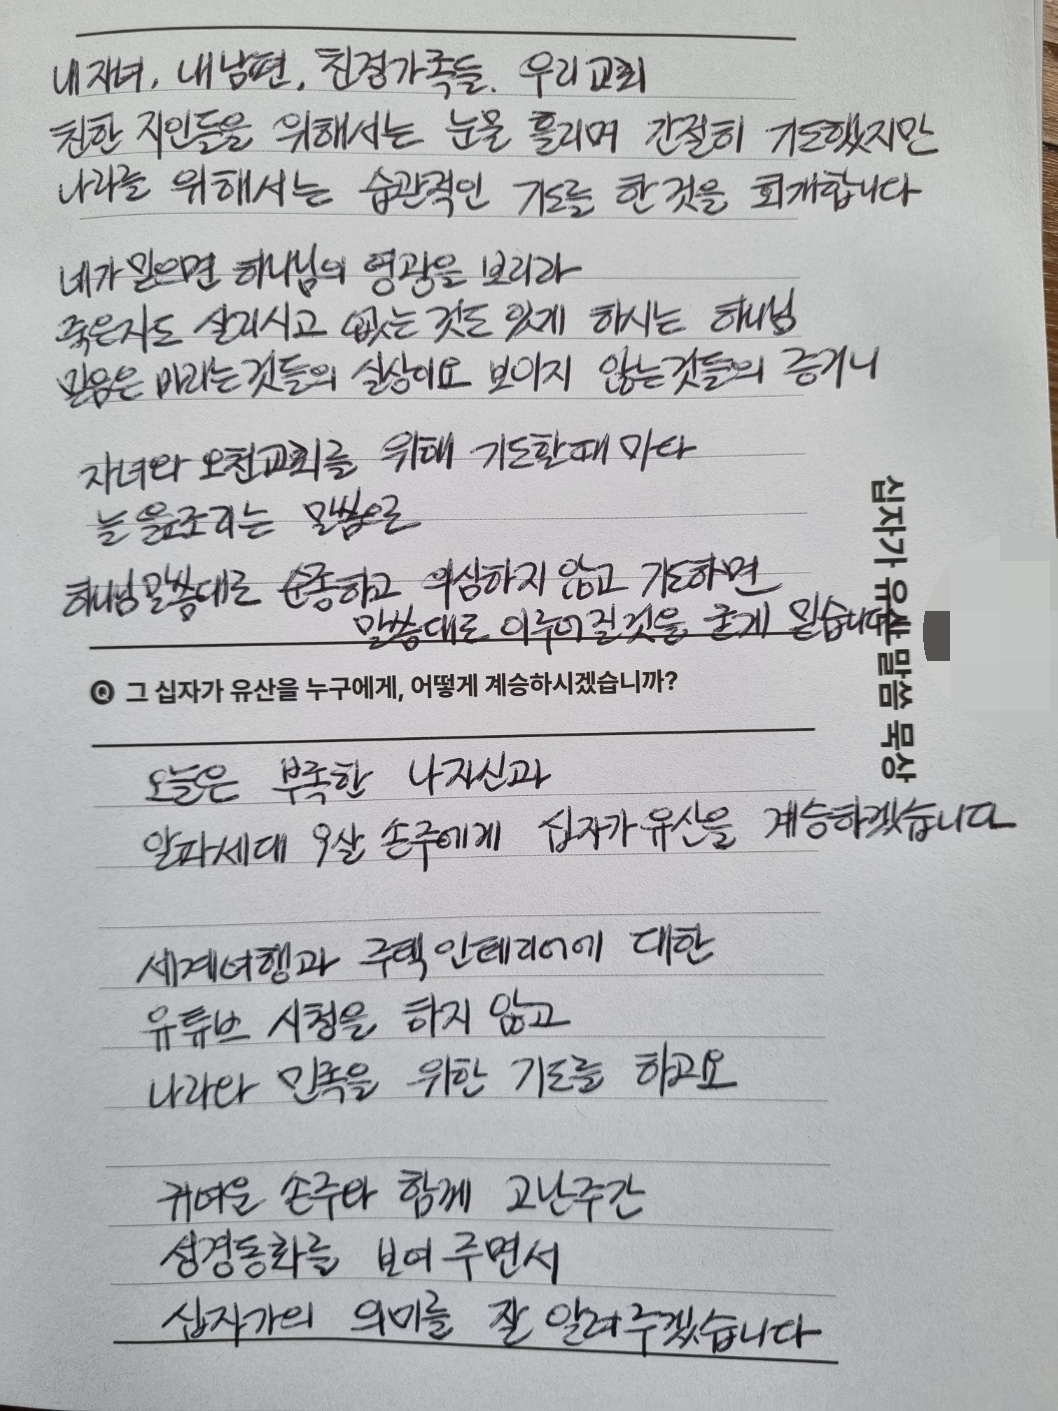 내 자녀, 내 남편, 친정가족들. 우리 교회
친한 지인들을 위해서는 눈물 흘리며 간절히 기도했지만
나라를 위해서는 습관적인 기도를 한 것을 회개합니다
네가 믿으면 하나님의 영광을 보리라
죽은자도 살리시고 없는 것도 있게 하시는 하나님
믿음은 바라는것들의 실상이요 보이지 않는것들의 증거니
자녀와 오천교회를 위해 기도할때 마다
늘 읊조리는 말씀으로
하나님 말씀대로 순종하고 의심하지 않고 기도하면
말씀대로 이루어질것을 굳게 믿습니다
십자가 유산 말씀 묵상
Q 그 십자가 유산을 누구에게, 어떻게 계승하시겠습니까?
오늘은 부족한 나 자신과
알파세대 9살 손주에게 십자가 유산을 계승하겠습니다
세계여행과 주택 인테리어에 대한
유튜브 시청을 하지 않고
나라와 민족을 위한 기도를 하고요
귀여운 손주와 함께 고난주간
성경동화를 보여 주면서
십자가의 의미를 잘 알려주겠습니다